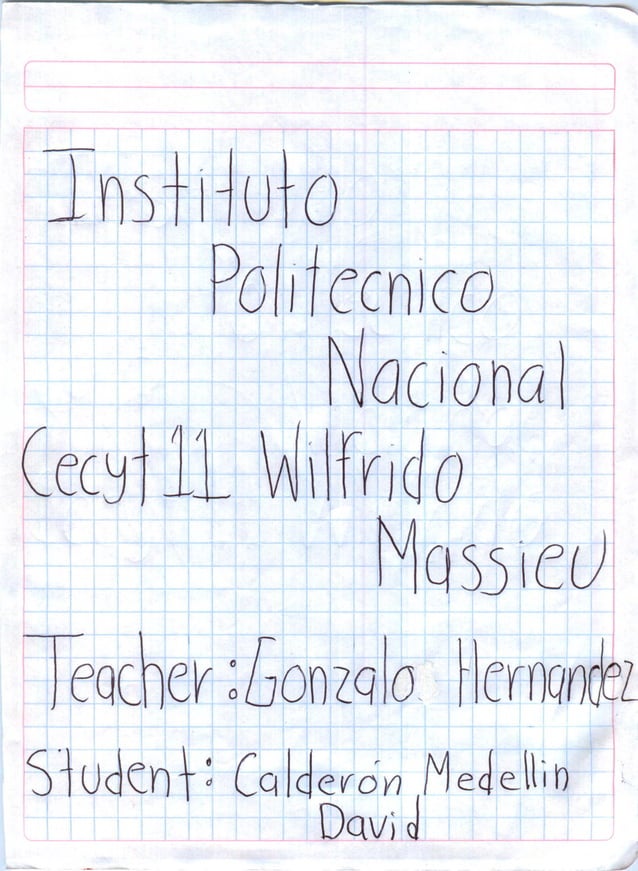 Instituto
Politecnico
Nacional
Cecyt 11 Wilfrido
Massieu
Teacher: Gonzalo Hernandez
Student: Calderón Medellin
David